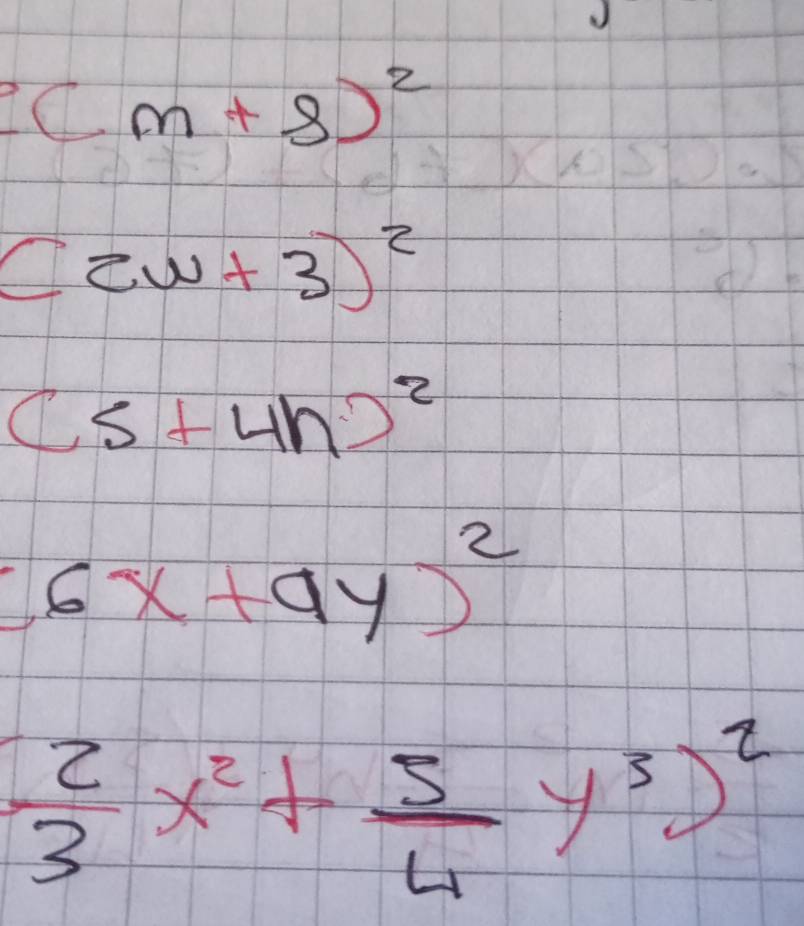 (m + 8)²
(2w + 3)²
(5 + 4n)²
(6x + 9y)²
(2/3 x² + 5/4 y³)²